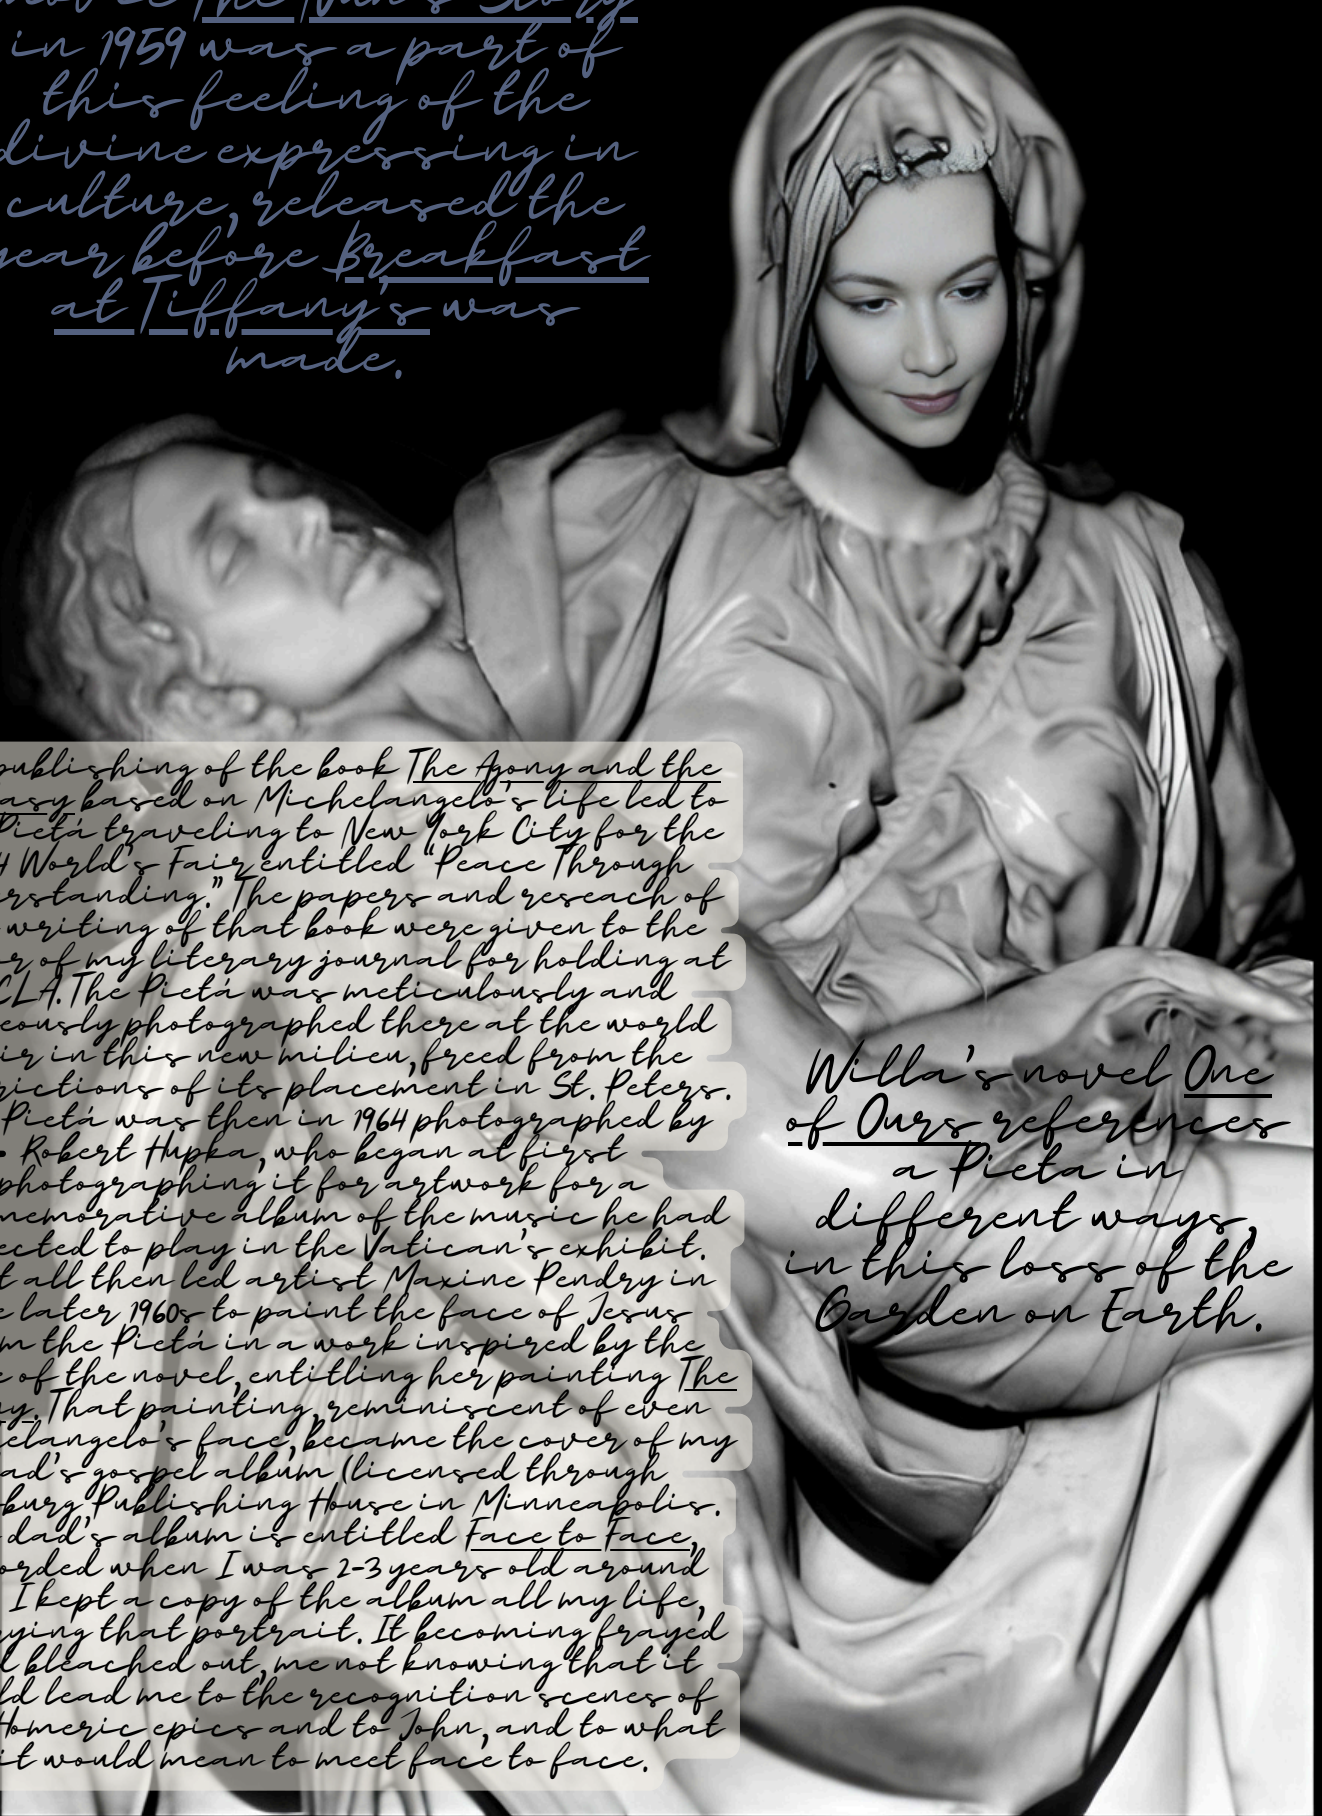 movie The Nun's Story
in 1959 was a part of
this feeling of the
divine expressing in
culture, released the
year before Breakfast
at Tiffany's was
made.
publishing of the book The Agony and the
asy based on Michelangelo's life led to
Pietá traveling to New York City for the
4 World's Fair entitled "Peace Through
rstanding." The papers and reseach of
writing of that book were given to the
r of my literary journal for holding at
CLA. The Pietá was meticulously and
eously photographed there at the world
ir in this new milieu, freed from the
rictions of its placement in St. Peters.
Pietá was then in 1964 photographed by
Robert Hupka, who began at first
photographing it for artwork for a
memorative album of the music he had
ected to play in the Vatican's exhibit.
t all then led artist Maxine Pendry in
e later 1960s to paint the face of Jesus
m the Pietá in a work inspired by the
e of the novel, entitling her painting The
ny. That painting, reminiscent of even
elangelo's face, became the cover of my
ad's gospel album (licensed through
burg Publishing House in Minneapolis.
dad's album is entitled Face to Face,
orded when I was 2-3 years old around
I kept a copy of the album all my life,
ying that portrait. It becoming frayed
d bleached out, me not knowing that it
ld lead me to the recognition scenes of
Homeric epics and to John, and to what
it would mean to meet face to face.
Willa's novel One
of Ours references
a Pieta in
different ways,
in this loss of the
Garden on Earth.